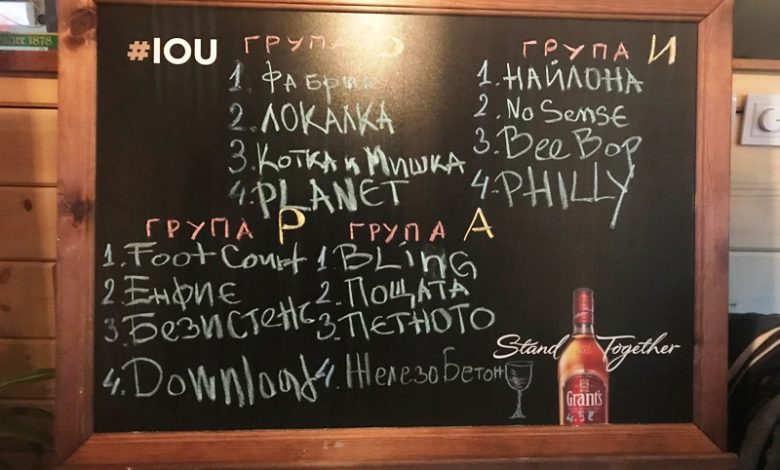 #IOU
ГРУПА
1. ФАБРИК
2. ЛОКАЛКА
3. КОТКА и МИШКА
4. PLANET
ГРУПА И
1. НАЙЛОНА
2. No SENSE
3. BEE BOP
4. PHILLY
ГРУПА Р
1. FOOT COURT
2. ЕНФИЕ
3. БЕЗИСТЕНС
4. DOWNLOAD
ГРУПА А
1. BLING
2. ПОЩАТА
3. ПЕТНОТО
4. ЖЕЛЕЗО БЕТОН
Stand Together
Grant's